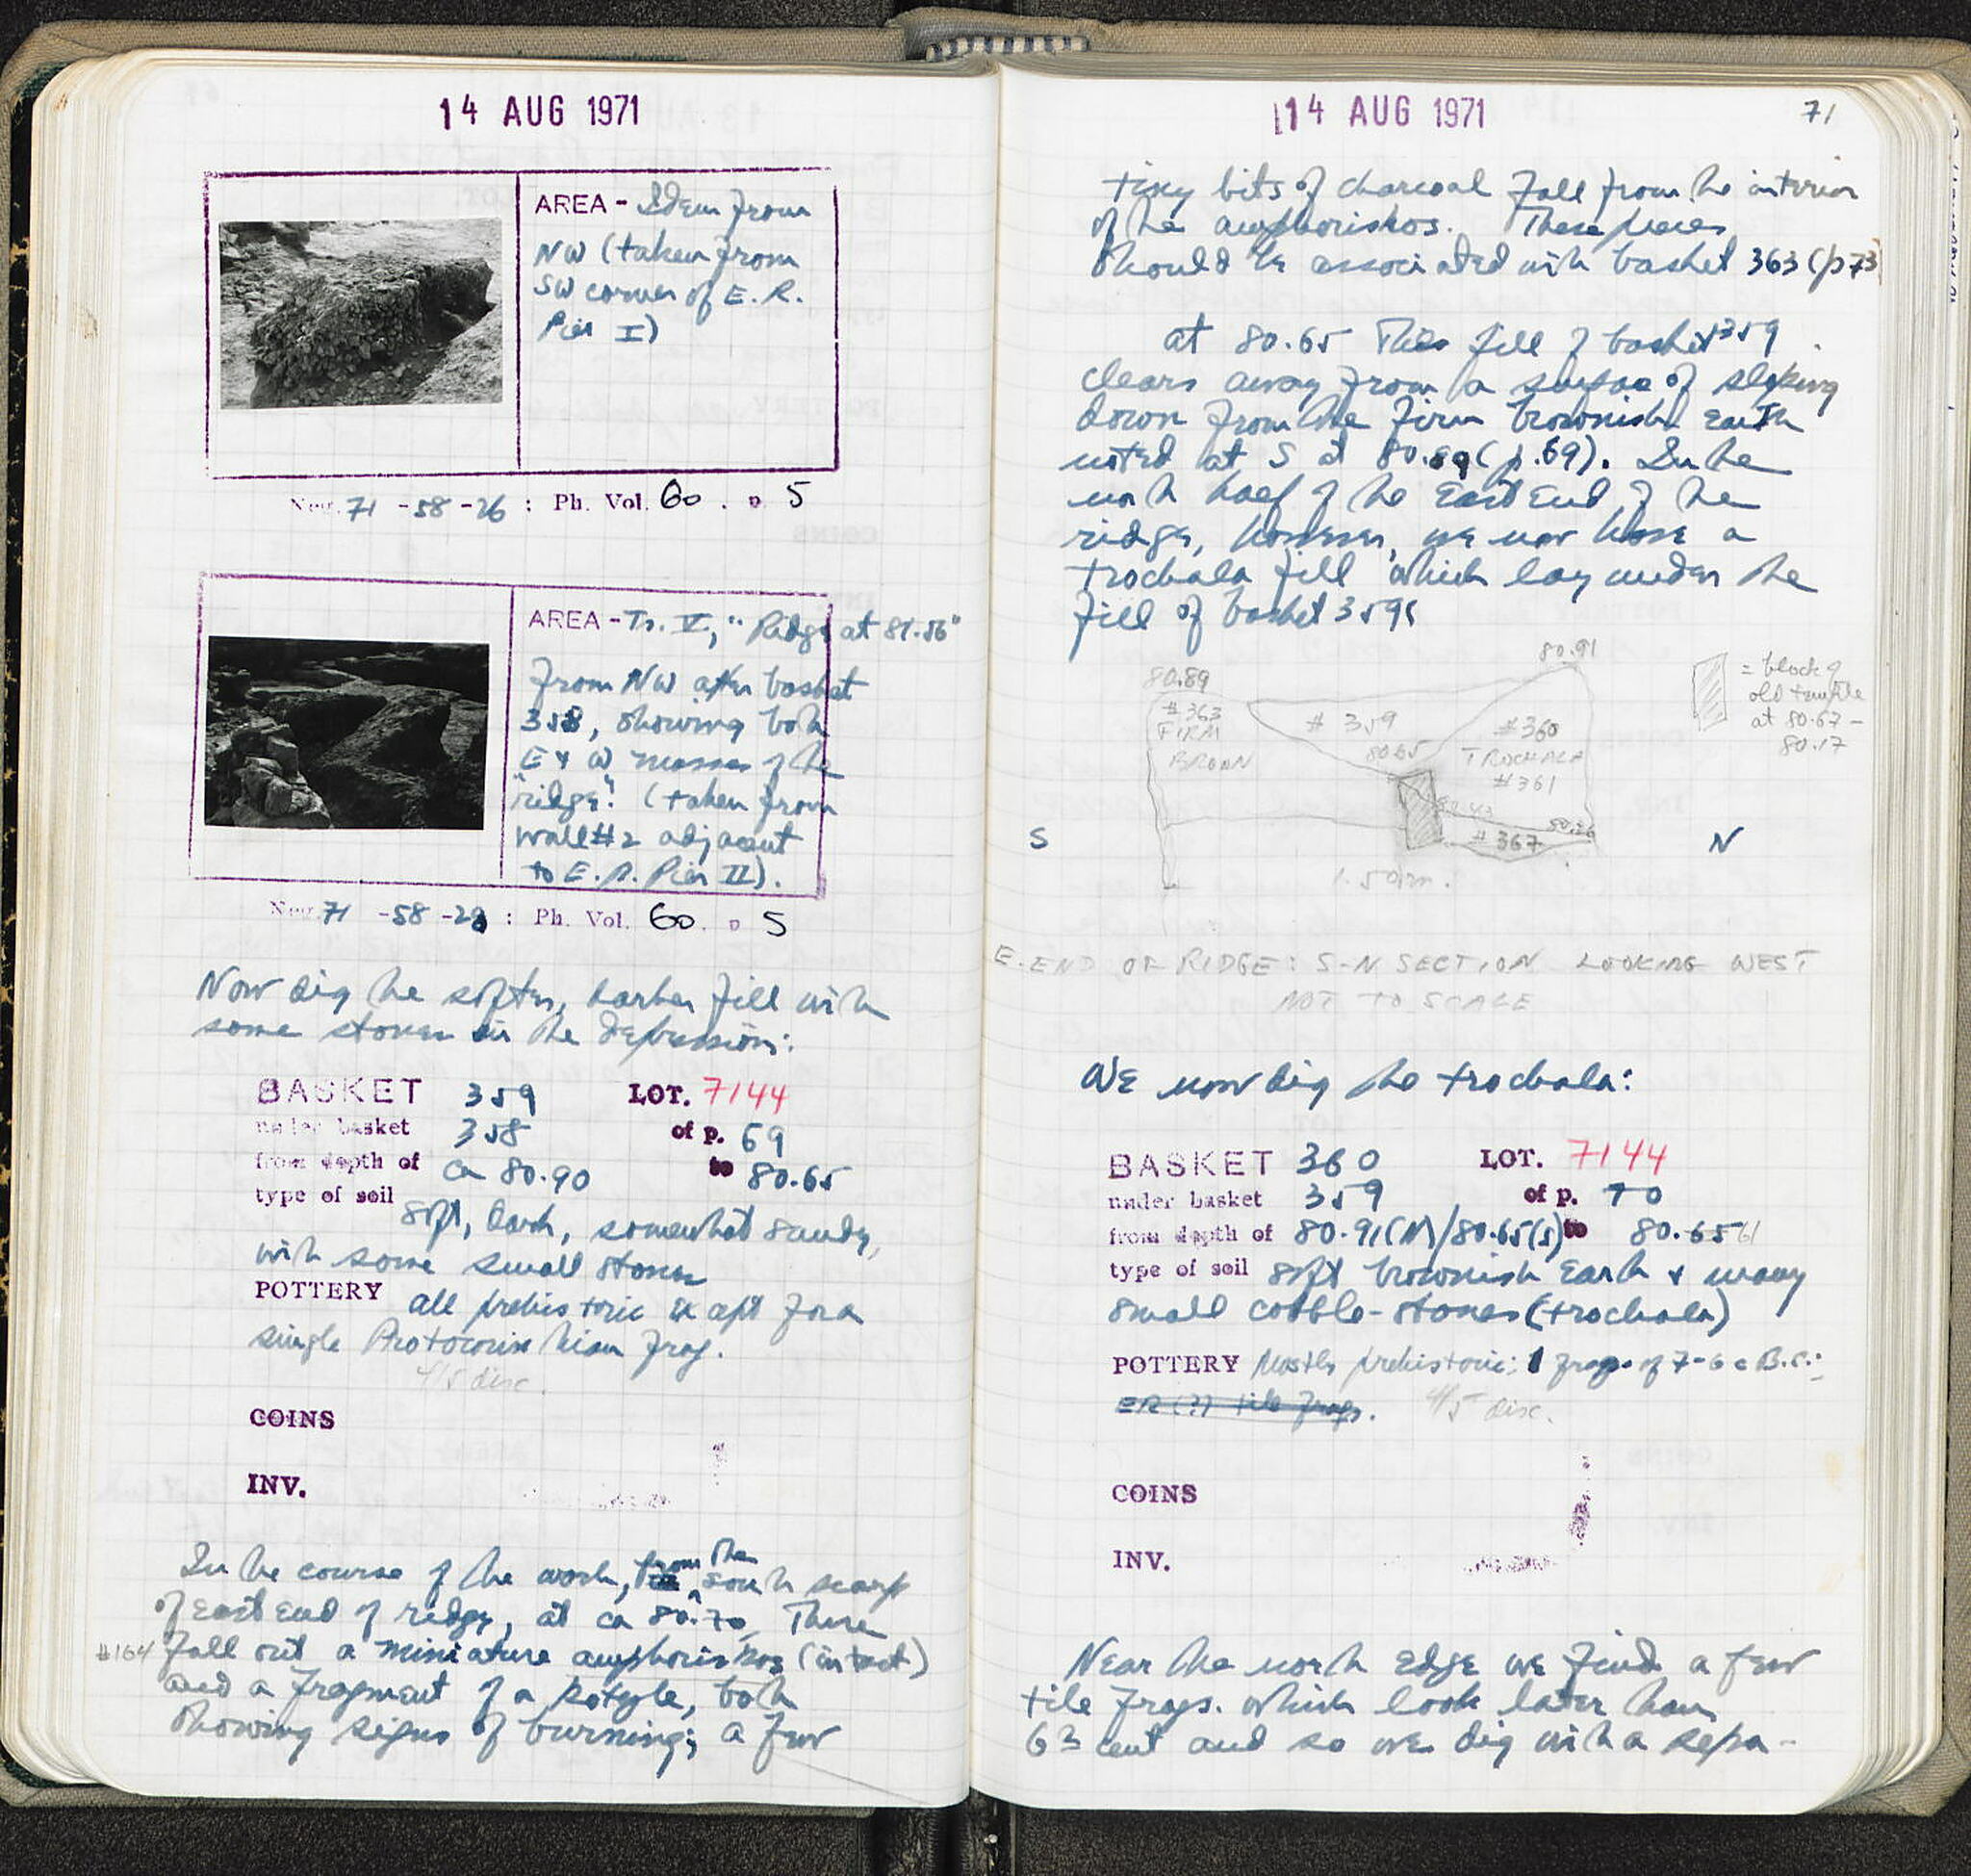 14 AUG 1971
AREA - Idem from
NW (taken from
SW corner of E. R.
Pier I)
Neg. 71 -58 -26 : Ph. Vol. 60 . p 5
AREA - Tr. V, "Ridge at 81.56"
from NW after basket
358, showing both
E & W masses of the
"ridge". (taken from
wall #2 adjacent
to E. R. Pier II).
Neg. 71 -58 -28 : Ph. Vol. 60 . p 5
Now dig the softer, darker fill with
some stones in the depression:
BASKET 359 LOT. 7144
under basket 358 of p. 69
from depth of ca 80.90 to 80.65
type of soil
soft, dark, somewhat sandy,
with some small stones
POTTERY all prehistoric except for a
single Protocorinthian frag.
4/5 disc.
COINS
INV.
In the course of the work, from the south scarp
of east end of ridge, at ca 80.70, there
#164 fall out a miniature amphoriskos (intact)
and a fragment of a kotyle, both
showing signs of burning; a few
14 AUG 1971
71
tiny bits of charcoal fall from the interior
of the amphoriskos. These pieces
should be associated with basket 363 (p73)
at 80.65 This fill of basket 359
clears away from a surface of sloping
down from the firm brownish earth
noted at S at 80.89 (p.69). In the
north half of the East End of the
ridge, however, we now have a
trochala fill which lay under the
fill of basket 359:
80.89
80.91
#363
FIRM
BROWN
# 359
80.65
#360
TROCHALA
#361
80.43
# 367
= block of
old temple
at 80.67 -
80.17
S
N
1.50m.
E. END OF RIDGE: S-N SECTION LOOKING WEST
NOT TO SCALE
We now dig the trochala:
BASKET 360 LOT. 7144
under basket 359 of p. 70
from depth of 80.91(N)/80.65(S) to 80.65 61
type of soil soft brownish Earth & many
small cobble-stones (trochala)
POTTERY Mostly prehistoric: 1 frag. of 7-6 c B.C.:
ER (?) tile frags. 4/5 disc.
COINS
INV.
Near the north edge we find a few
tile frags. which look later than
6th cent and so we dig with a sepa-